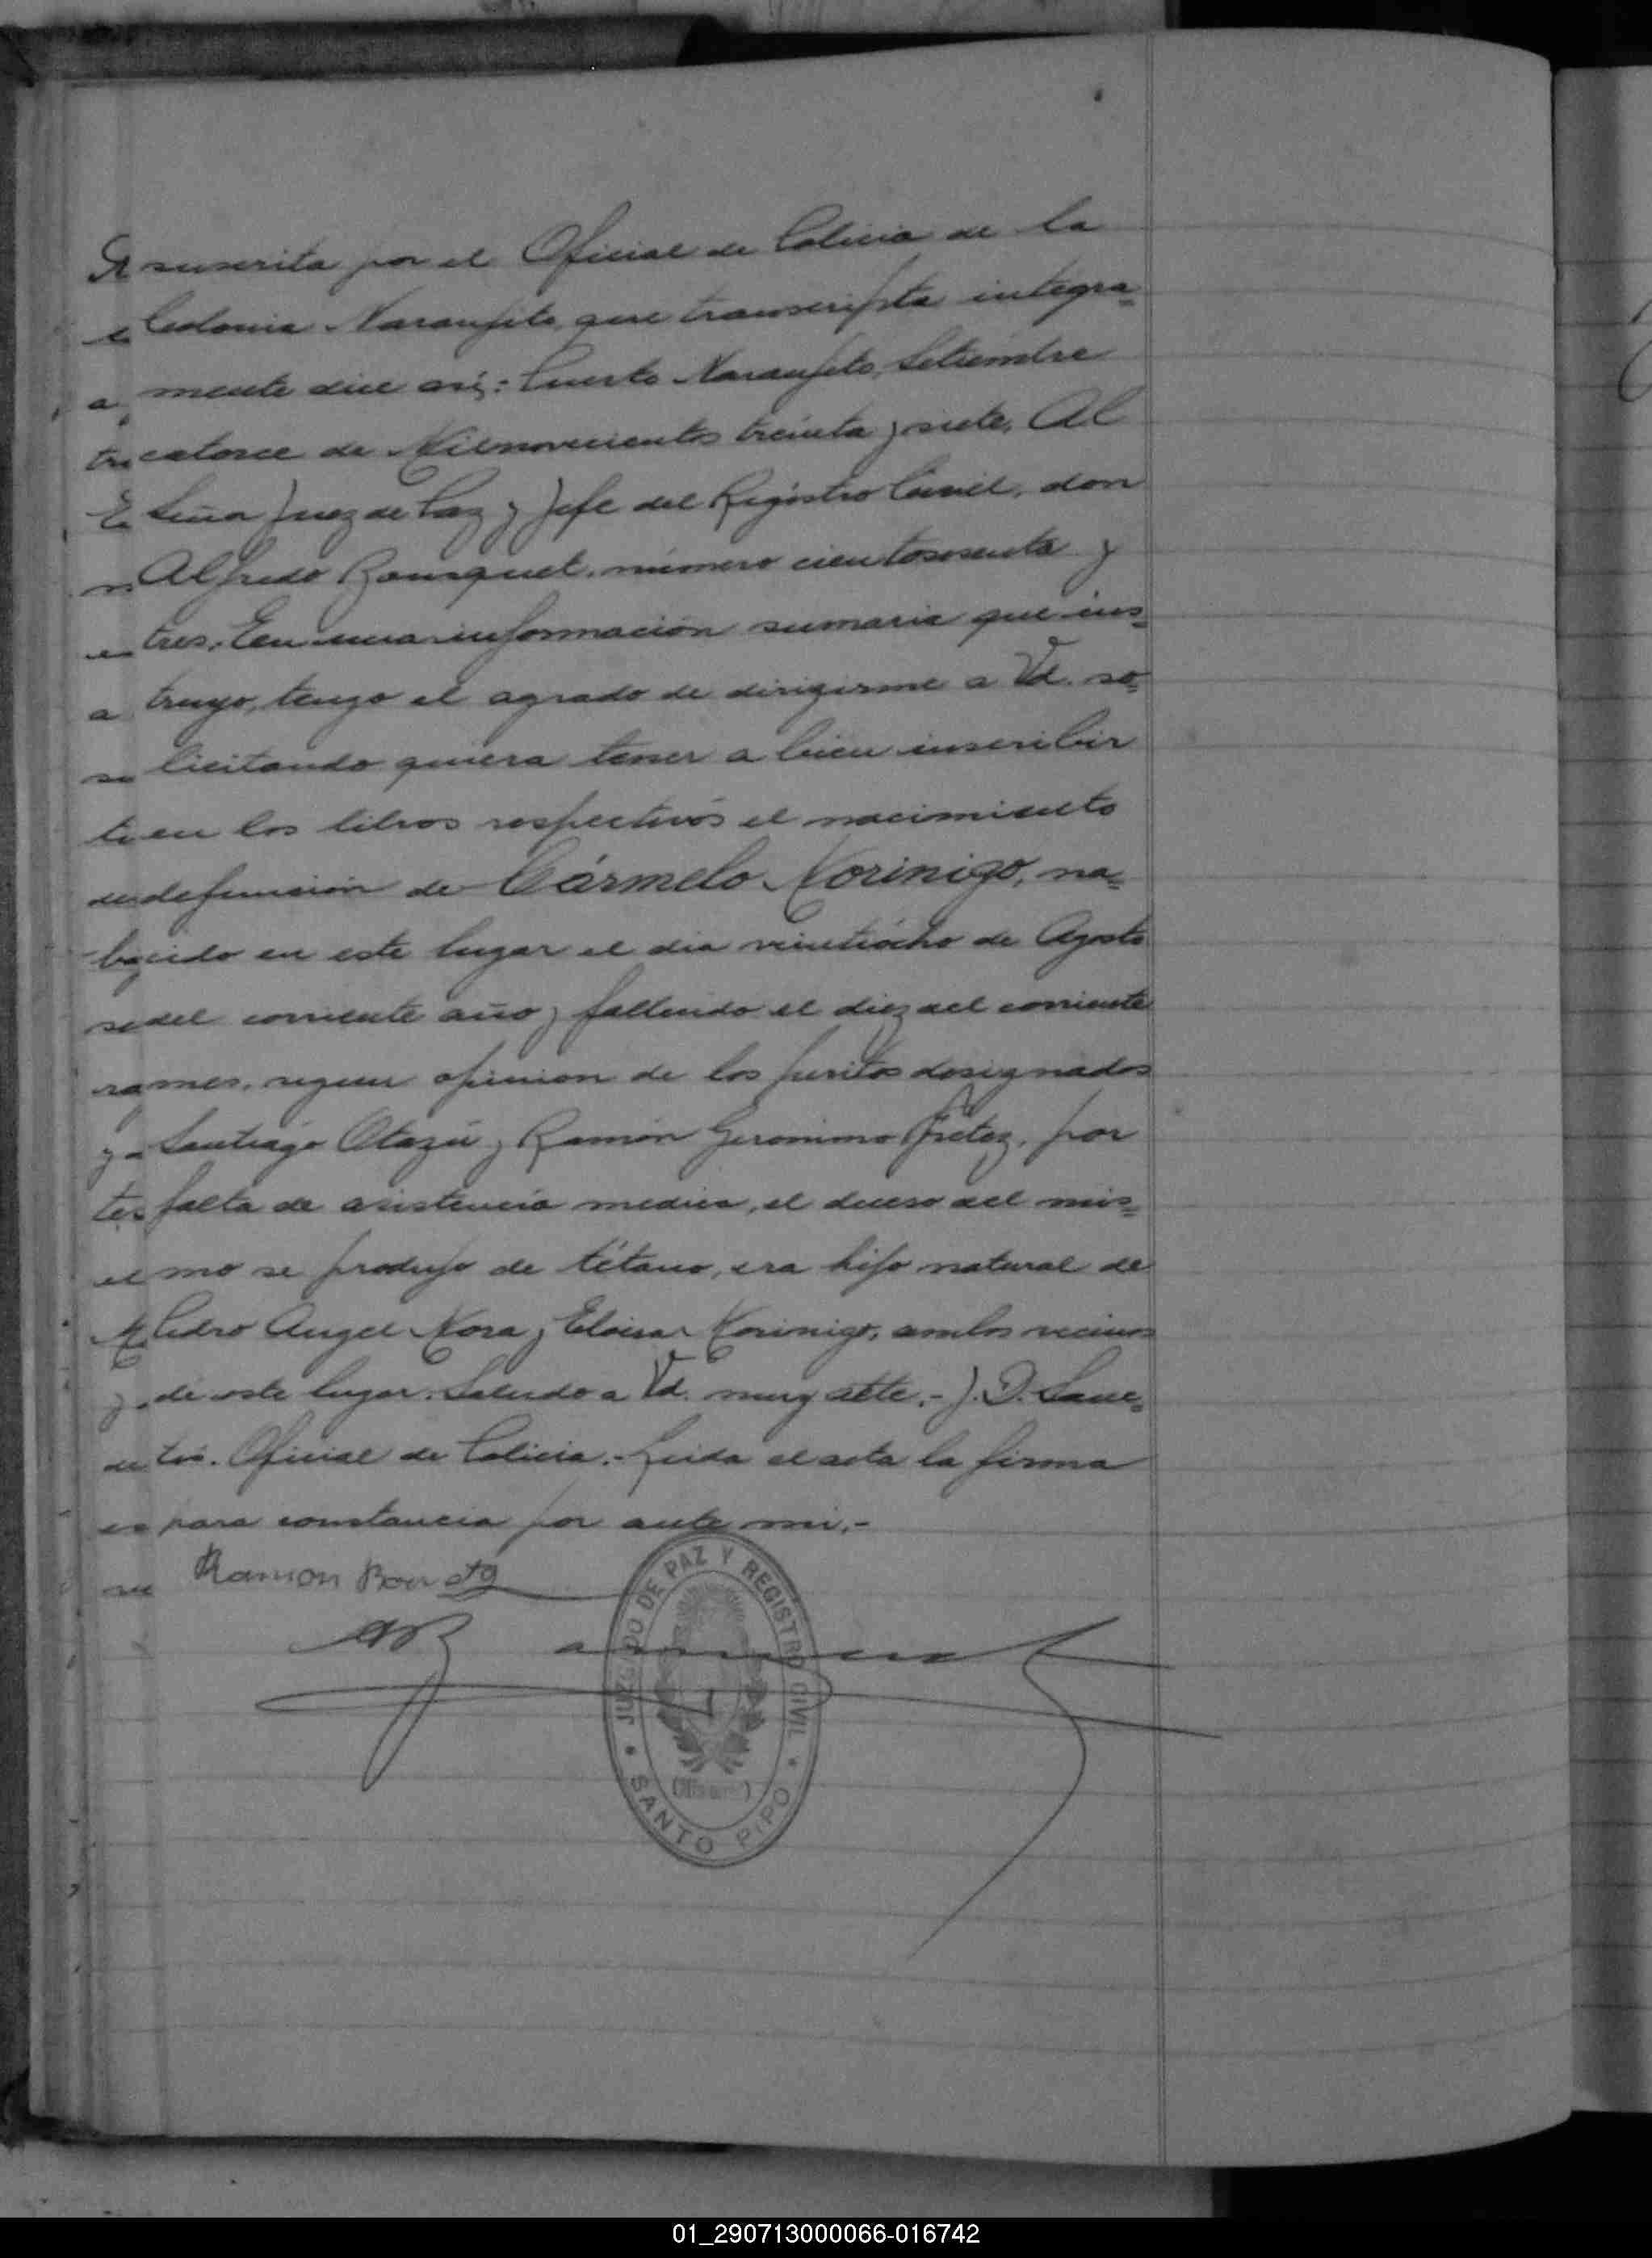 suscrita por el Oficial de Policia de la
Colonia Naranjito, que transcripta integra=
mente dice así: Puerto Naranjito, Setiembre
catorce de Milnovecientos treinta y siete. Al
Señor Juez de Paz y Jefe del Registro Civil, don
Alfredo Bousquet, número cientosesenta y
tres. En una información sumaria que ins=
truyo, tengo el agrado de dirigirme a Vd. so=
licitando quiera tener a bien inscribir
en los libros respectivos el nacimiento
defunción de Cármelo Norinigo, na=
cido en este lugar el dia veintiócho de Agosto
del corriente año y fallecido el diez del corriente
mes, segun opinion de los peritos designados
Santiago Otazú y Ramón Geronimo Fretez, por
falta de asistencia medica, el deceso del mis=
mo se produjo de tétano, era hijo natural de
Pedro Angel Nora y Eloisa Norinigo, ambos vecinos
de este lugar. Saludo a Vd. muy atte.- J. D.
Oficial de Policia.- Leida el acta la firma
para constancia por ante mi.-
Ramon
JUZGADO DE PAZ Y REGISTRO CIVIL
SANTO PIPO
01_290713000066-016742